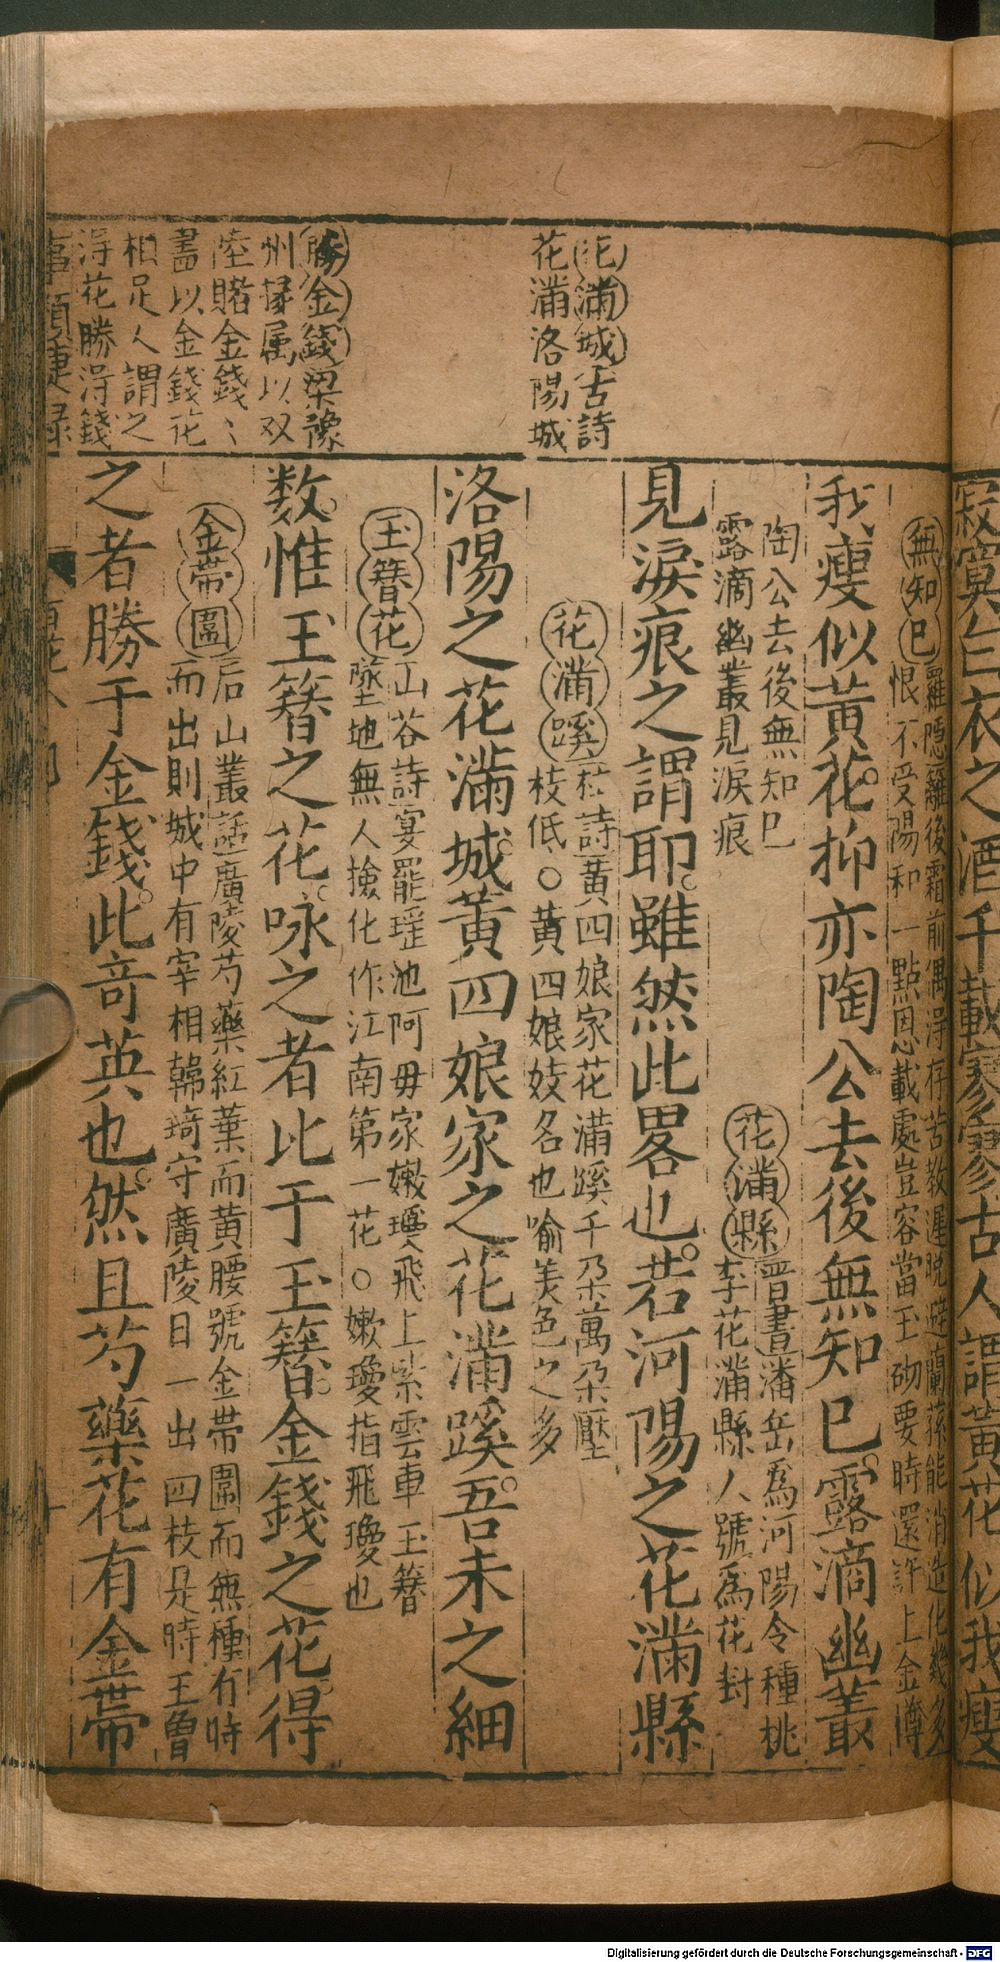 花滿城古詩
花滿洛陽城
勝金錢梁豫
州掾属以双
陸賭金錢〻
盡以金錢花
相足人謂之
淂花勝淂錢
寂寞白衣之酒千載寥寥古人謂黃花似我瘦
無知巳
羅隐籬後霜前偶淂存苦教遲晩避蘭蓀能消造化幾多
恨不受陽和一點恩載處豈容當玉砌要時還許上金罇
我瘦似黃花抑亦陶公去後無知巳露滴幽叢
陶公去後無知巳
露滴幽叢見淚痕
花滿縣
晋書潘岳爲河陽令種桃
李花滿縣人號爲花封
見淚痕之謂耶雖然此畧也若河陽之花滿縣
花滿蹊
杜詩黃四娘家花滿蹊千朶萬朶壓
枝低○黃四娘妓名也喻美色之多
洛陽之花滿城黃四娘家之花滿蹊吾未之細
玉簪花
山谷詩宴罷瑶池阿毋家嫩瓊飛上紫雲車玉簪
墜地無人撿化作江南第一花○嫰瓊指飛瓊也
数惟玉簪之花咏之者比于玉簪金錢之花得
金帶圍
后山叢話廣陵芍藥紅葉而黃腰號金帶圍而無種有時
而出則城中有宰相韓琦守廣陵日一出四枝是時王曾
之者勝于金錢此竒英也然且芍藥花有金帶
Digitalisierung gefördert durch die Deutsche Forschungsgemeinschaft - DFG